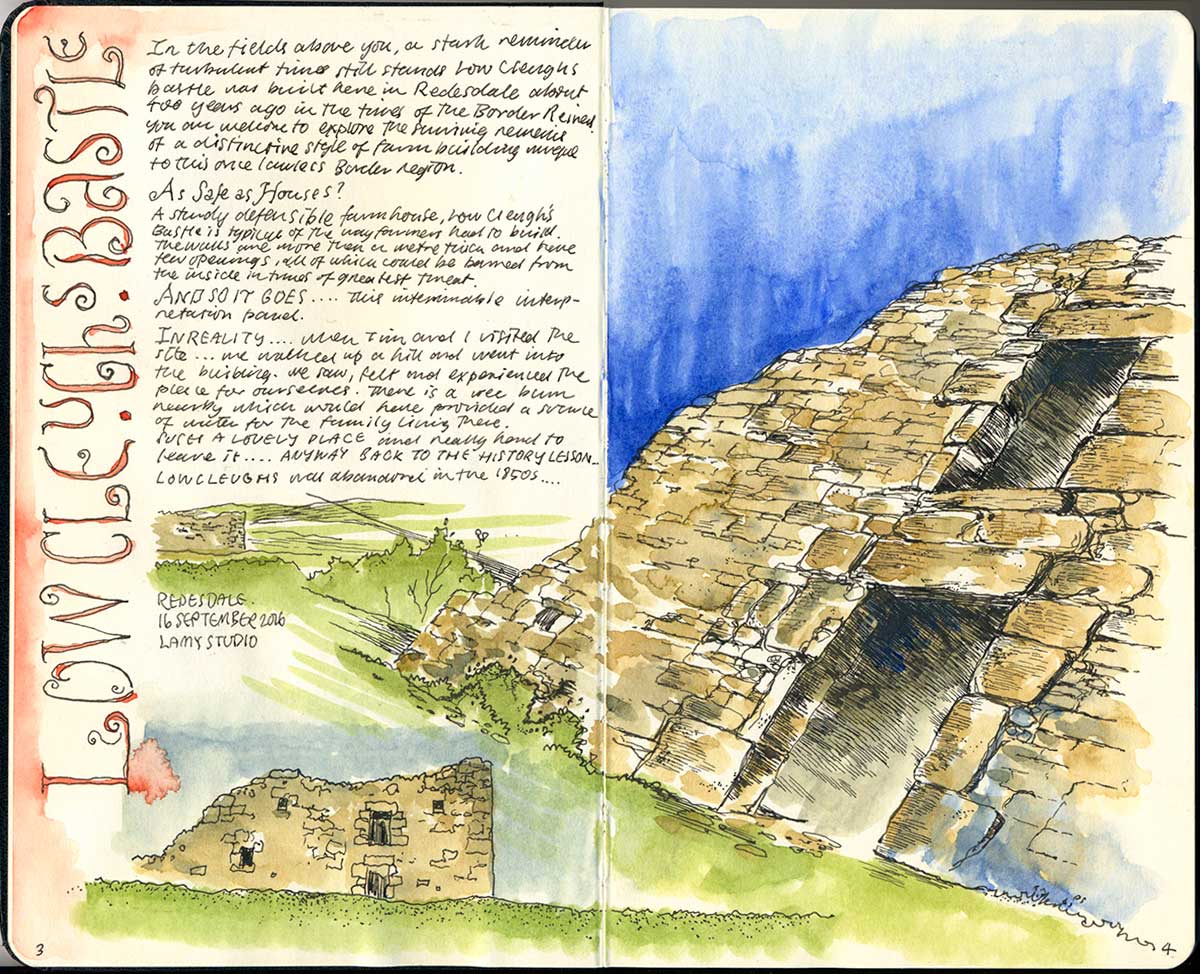 LOW CLEUGHS BASTLE
In the fields above you, a stark reminder
of turbulent times still stands Low Cleughs
bastle was built here in Redesdale about
400 years ago in the times of the Border Reivers.
You are welcome to explore the surviving remains
of a distinctive style of farm building unique
to this once lawless Border region.
As Safe as Houses?
A sturdy defensible farmhouse, Low Cleughs
Bastle is typical of the way farmers had to build.
The walls are more than a metre thick and have
few openings, all of which could be barred from
the inside in times of greatest threat.
AND SO IT GOES .... This interminable interp-
retation panel.
IN REALITY .... when Tim and I visited the
site ... we walked up a hill and went into
the building. We saw, felt and experienced the
place for ourselves. There is a wee burn
nearby which would have provided a source
of water for the family living there.
SUCH A LOVELY PLACE and really hard to
leave it .... ANYWAY BACK TO THE HISTORY LESSON...
LOW CLEUGHS was abandoned in the 1850s ....
REDESDALE.
16 SEPTEMBER 2016
LAMY STUDIO
3
4